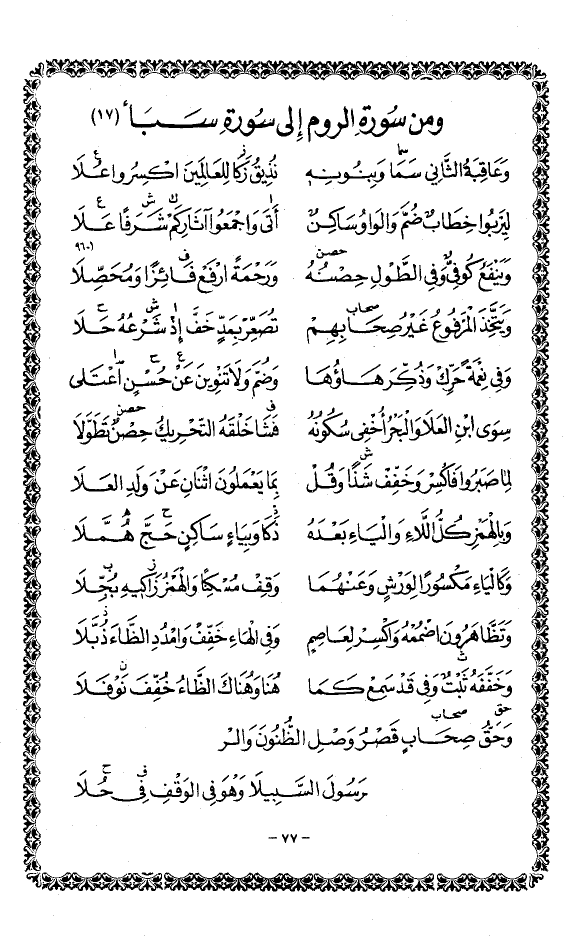 ومن سُورة الروم إلى سُورة سَبَأ (١٧)
وَعَاقِبَةُ الثَّانِي سَمَا وَبِنُونِهِ نُذِيقُ زَكَا لِلْعَالَمِينَ اكْسِرُوا عُلَا
لِيَرْبُوا خِطَابٌ ضُمَّ وَالْوَاوُ سَاكِنٌ أَتَى وَاجْمَعُوا آثَارِكَمْ شَرَفًا عَلَا
٩٦٠١
وَيَنْفَعُ كُوفِيٌّ وَفِي الطَّوْلِ حِصْنُهُ وَرَحْمَةً ارْفَعْ فَائِزًا وَمُحَصِّلَا
وَيَتَّخِذَ الْمَرْفُوعُ غَيْرُ صِحَابِهِمْ تُصَعِّرْ بِمَدٍّ خَفَّ إِذْ شَرْعُهُ حَلَا
وَفِي نِعْمَةً حَرِّكْ وَذُكِّرَ هَاؤُهَا وَضُمَّ وَلَا تَنْوِينَ عَنْ حُسْنٍ اعْتَلَى
سِوَى ابْنِ الْعَلَا وَالْبَحْرُ أُخْفِي سُكُونُهُ فَشَا خَلْقَهُ التَّحْرِيكُ حِصْنٌ تَطَوَّلَا
لِمَا صَبَرُوا فَاكْسِرْ وَخَفِّفْ شَذًا وَقُلْ بِمَا يَعْمَلُونَ اثْنَانِ عَنْ وَلَدِ الْعَلَا
وَبِالْهَمْزِ كُلُّ اللَّاءِ وَالْيَاءِ بَعْدَهُ ذَكَا وَبِيَاءٍ سَاكِنٍ حَجَّ هُمَّلَا
وَكَالْيَاءِ مَكْسُورًا لِوَرْشٍ وَعَنْهُمَا وَقِفْ مُسْكِنًا وَالْهَمْزُ زَاكِيهِ بُجِّلَا
وَتَظَّاهَرُونَ اضْمُمْهُ وَاكْسِرْ لِعَاصِمٍ وَفِي الْهَاءِ خَفِّفْ وَامْدُدِ الظَّاءَ ذُبَّلَا
وَخَفَّفَهُ ثَبْتٌ وَفِي قَدْ سَمِعْ كَمَا هُنَا وَهُنَاكَ الظَّاءُ خُفِّفَ نَوْفَلَا
وَحَقُّ صِحَابٍ قَصْرُ وَصْلِ الظُّنُونَ وَالرْ
رَسُولَ السَّبِيلَا وَهْوَ فِي الْوَقْفِ فِي حُلَا
- ٧٧ -